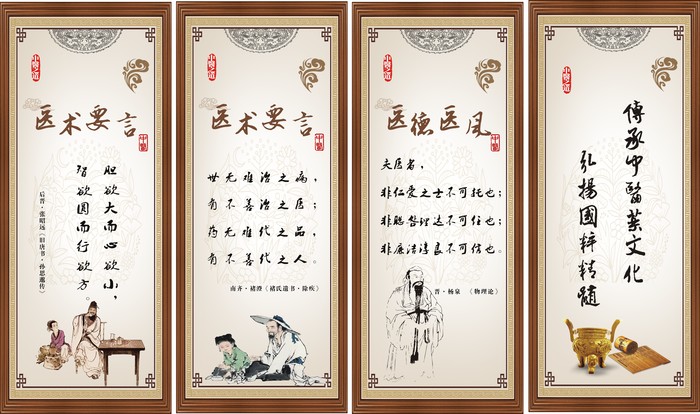 医术要言
中医
胆欲大而心欲小，
智欲圆而行欲方。
后晋·张昭远《旧唐书·孙思邈传》
医术要言
中医
世无难治之病，
有不善治之医；
药无难代之品，
有不善代之人。
南齐·褚澄《褚氏遗书·除疾》
医德医风
中医
夫医者，
非仁爱之士不可托也；
非聪明理达不可任也；
非廉洁淳良不可信也。
晋·杨泉 《物理论》
傳承中醫藥文化
弘揚國粹精髓